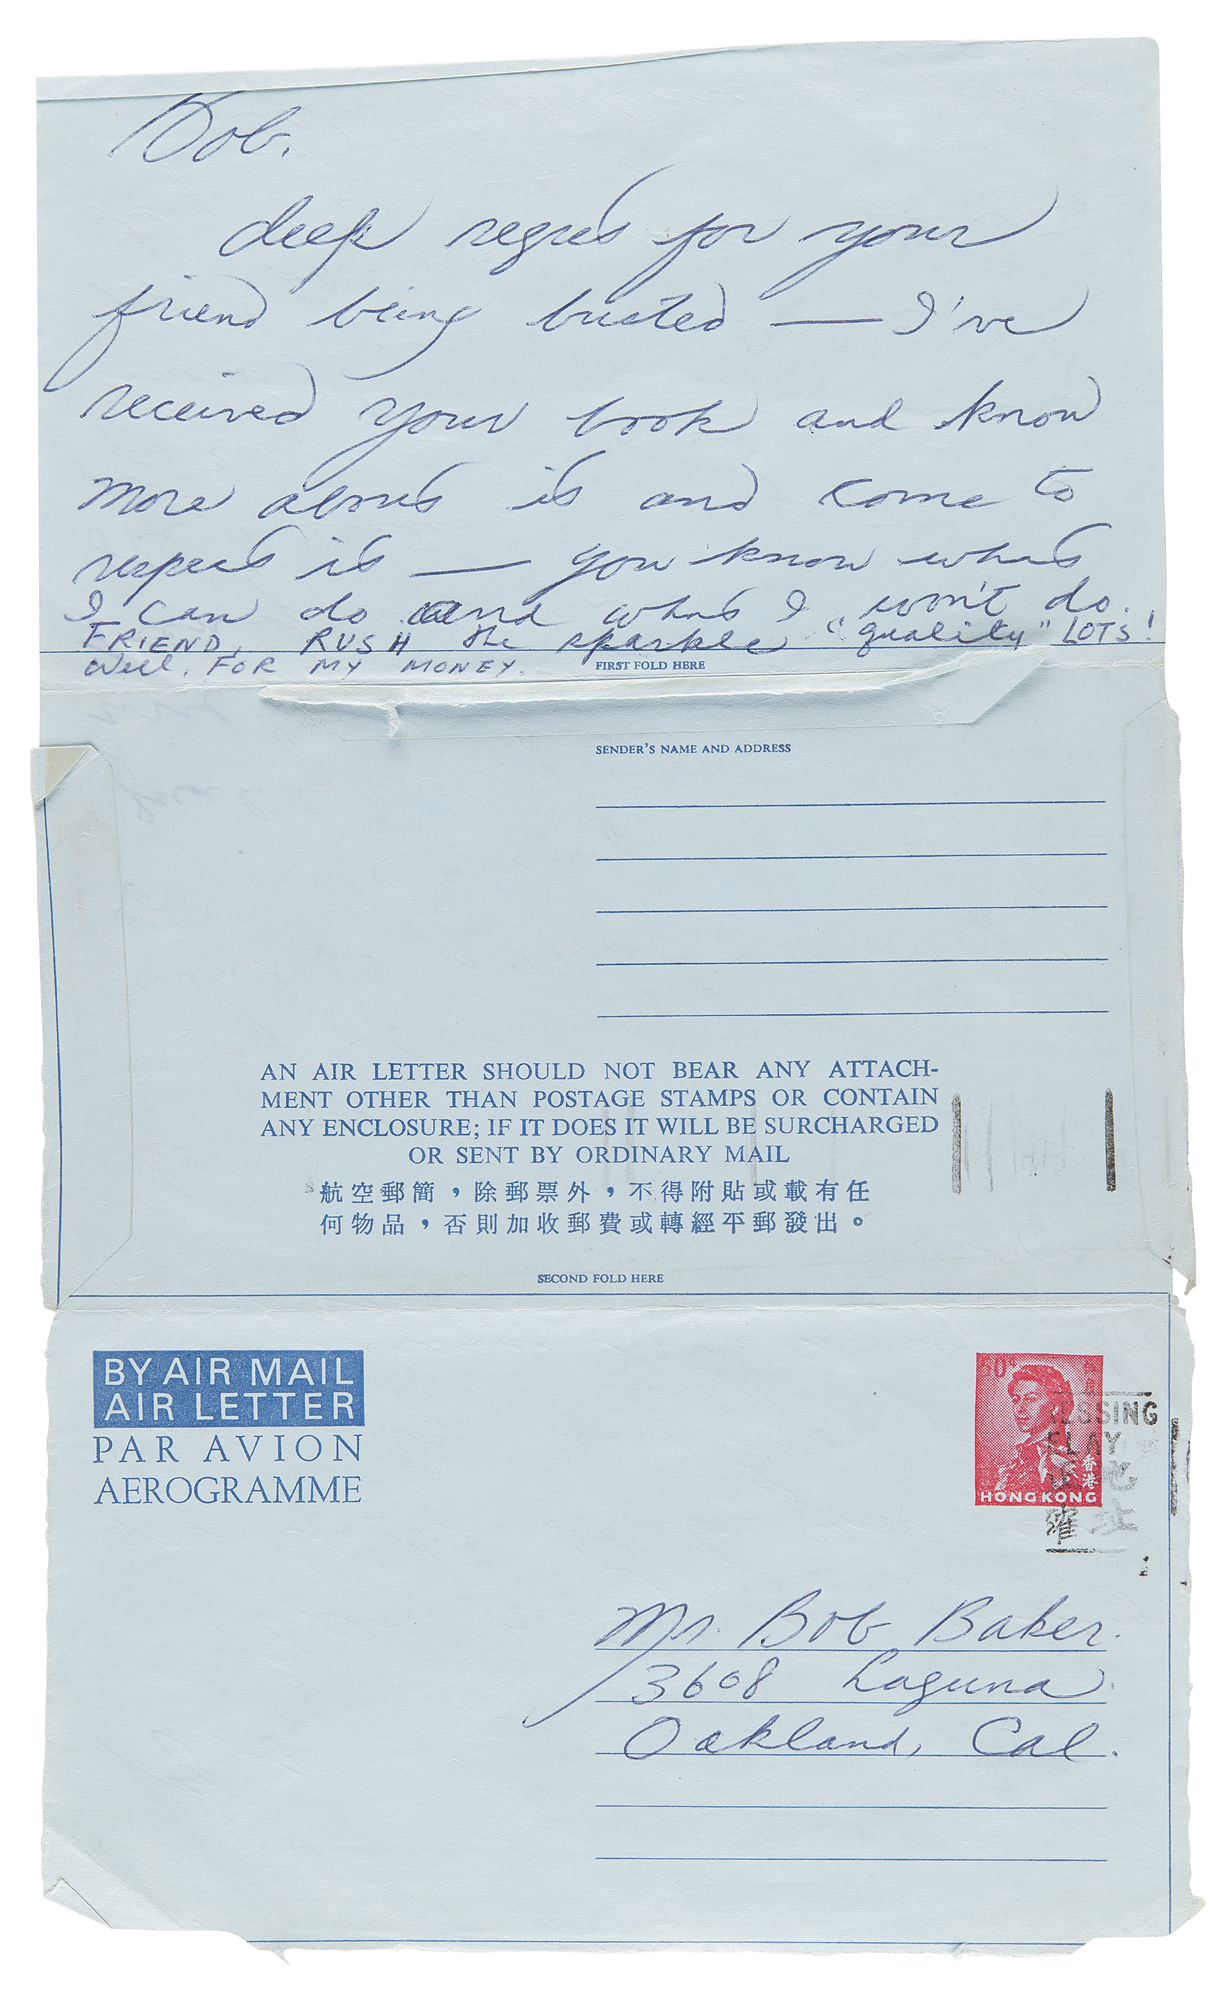 Bob.
deep regret for your
friend being busted — I've
received your book and know
more about it and come to
respect it — you know what
I can do and what I won't do.
FRIEND, RUSH the sparkle "quality" LOTS!
Well. FOR MY MONEY.
FIRST FOLD HERE
SENDER'S NAME AND ADDRESS
AN AIR LETTER SHOULD NOT BEAR ANY ATTACH-
MENT OTHER THAN POSTAGE STAMPS OR CONTAIN
ANY ENCLOSURE; IF IT DOES IT WILL BE SURCHARGED
OR SENT BY ORDINARY MAIL
航空郵簡，除郵票外，不得附貼或載有任
何物品，否則加收郵費或轉經平郵發出。
SECOND FOLD HERE
BY AIR MAIL
AIR LETTER
PAR AVION
AEROGRAMME
香港
HONG KONG
Mr. Bob Baker.
3608 Laguna.
Oakland, Cal.